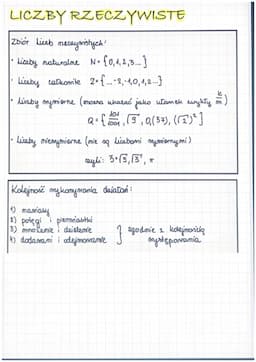 LICZBY RZECZYWISTE
Zbiór liczb rzeczywistych:
• liczby naturalne N = {0,1,2,3...}
• liczby całkowite Z = {...-2,-1,0,1,2...}
• liczby wymierne (można ukazać jako ułamek zwykły k/m)
• liczby niewymierne (nie są liczbami wymiernymi)
czyli: π
Kolejność wykonywania działań:
1) nawiasy
2) potęgi i pierwiastki
3) mnożenie i dzielenie
4) dodawanie i odejmowanie } zgodnie z kolejnością
występowania